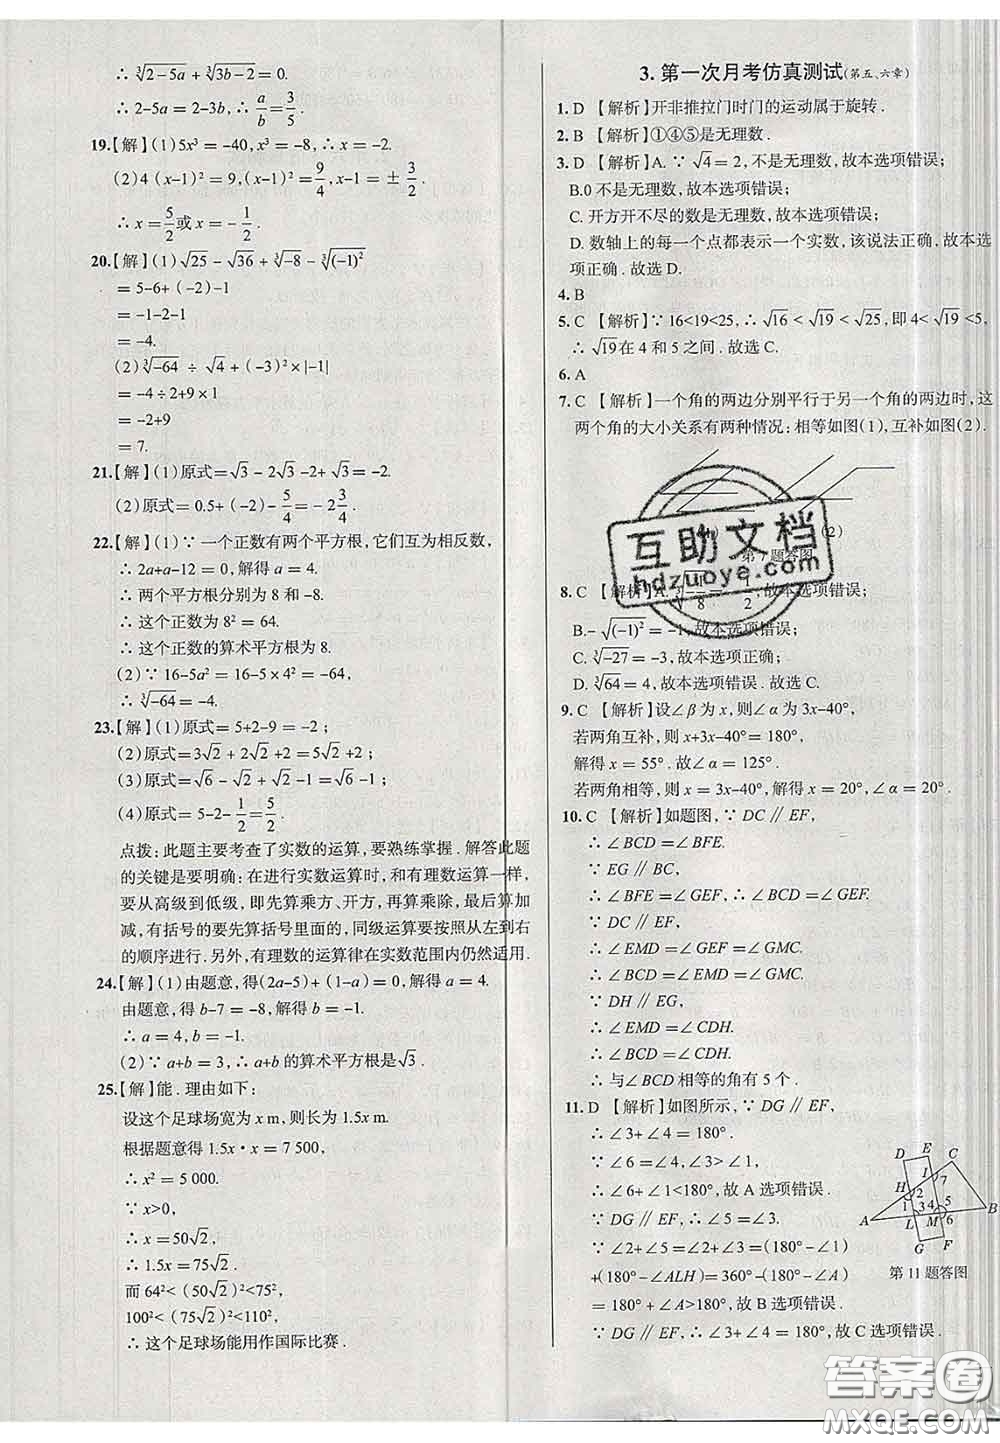 ∴ ∛(2-5a) + ∛(3b-2) = 0.
∴ 2-5a = 2-3b, ∴ a/b = 3/5.
19.【解】(1)5x³ = -40, x³ = -8, ∴ x = -2.
(2)4(x-1)² = 9, (x-1)² = 9/4, x-1 = ± 3/2.
∴ x = 5/2 或 x = -1/2.
20.【解】(1)√25 - √36 + ∛-8 - ∛(-1)²
= 5-6+(-2)-1
= -1-2-1
= -4.
(2)∛-64 ÷ √4 + (-3)² × |-1|
= -4÷2+9×1
= -2+9
= 7.
21.【解】(1)原式 = √3 - 2√3 -2+ √3 = -2.
(2)原式 = 0.5+(-2)- 5/4 = -2 3/4.
22.【解】(1)∵ 一个正数有两个平方根,它们互为相反数,
∴ 2a+a-12 = 0,解得 a = 4.
∴ 两个平方根分别为 8 和 -8.
∴ 这个正数为 8² = 64.
∴ 这个正数的算术平方根为 8.
(2)∵ 16-5a² = 16-5×4² = -64,
∴ ∛-64 = -4.
23.【解】(1)原式 = 5+2-9 = -2;
(2)原式 = 3√2 + 2√2 +2 = 5√2 +2;
(3)原式 = √6 - √2 + √2 -1 = √6 -1;
(4)原式 = 5-2- 1/2 = 5/2.
点拨:此题主要考查了实数的运算,要熟练掌握.解答此题
的关键是要明确:在进行实数运算时,和有理数运算一样,
要从高级到低级,即先算乘方、开方,再算乘除,最后算加
减,有括号的要先算括号里面的,同级运算要按照从左到右
的顺序进行.另外,有理数的运算律在实数范围内仍然适用.
24.【解】(1)由题意,得(2a-5)+(1-a) = 0,解得 a = 4.
由题意,得 b-7 = -8,解得 b = -1.
∴ a = 4, b = -1.
(2)∵ a+b = 3, ∴ a+b 的算术平方根是√3.
25.【解】能.理由如下:
设这个足球场宽为 x m,则长为 1.5x m.
根据题意得 1.5x·x = 7 500,
∴ x² = 5 000.
∵ x>0,
∴ x = 50√2,
∴ 1.5x = 75√2.
而 64²<(50√2)²<75²,
100²<(75√2)²<110²,
∴ 这个足球场能用作国际比赛.
3. 第一次月考仿真测试(第五、六章)
1. D 【解析】开非推拉门时门的运动属于旋转.
2. B 【解析】①④⑤是无理数.
3. D 【解析】A. ∵ √4 = 2,不是无理数,故本选项错误;
B.0 不是无理数,故本选项错误;
C. 开方开不尽的数是无理数,故本选项错误;
D. 数轴上的每一个点都表示一个实数,该说法正确,故本选
项正确.故选 D.
4. B
5. C 【解析】∵ 16<19<25, ∴ √16 < √19 < √25,即 4< √19 <5,
∴ √19在 4 和 5 之间.故选 C.
6. A
7. C 【解析】一个角的两边分别平行于另一个角的两边时,这
两个角的大小关系有两种情况:相等如图(1),互补如图(2).
(2)
第 7 题答图
互助文档
hdzuoye.com
8. C 【解析】A. 故本选项错误;
B.- √(-1)² = -1,故本选项错误;
C. ∛-27 = -3,故本选项正确;
D. ∛64 = 4,故本选项错误.故选 C.
9. C 【解析】设∠β 为 x,则∠α 为 3x-40°,
若两角互补,则 x+3x-40° = 180°,
解得 x = 55°. 故∠α = 125°.
若两角相等,则 x = 3x-40°,解得 x = 20°,∠α = 20°.
10. C 【解析】如题图,∵ DC∥EF,
∴ ∠BCD = ∠BFE.
∵ EG∥BC,
∴ ∠BFE = ∠GEF, ∴ ∠BCD = ∠GEF.
∵ DC∥EF,
∴ ∠EMD = ∠GEF = ∠GMC.
∴ ∠BCD = ∠EMD = ∠GMC.
∵ DH∥EG,
∴ ∠EMD = ∠CDH.
∴ ∠BCD = ∠CDH.
∴ 与∠BCD 相等的角有 5 个.
11. D 【解析】如图所示,∵ DG∥EF,
∴ ∠3+∠4 = 180°.
∵ ∠6 = ∠4,∠3>∠1,
∴ ∠6+∠1<180°,故 A 选项错误.
∵ DG∥EF, ∴ ∠5 = ∠3.
∴ ∠2+∠5 = ∠2+∠3 = (180°-∠1)
+(180°-∠ALH) = 360°-(∠1+∠ALH) = 360°-(180°-∠A)
= 180°+∠A>180°,故 B 选项错误.
∵ DG∥EF, ∴ ∠3+∠4 = 180°,故 C 选项错误.
D E C
I 7
H 2
A 1 3 4 5 B
L M 6
G F
第 11 题答图
答案圈
MXQE.COM